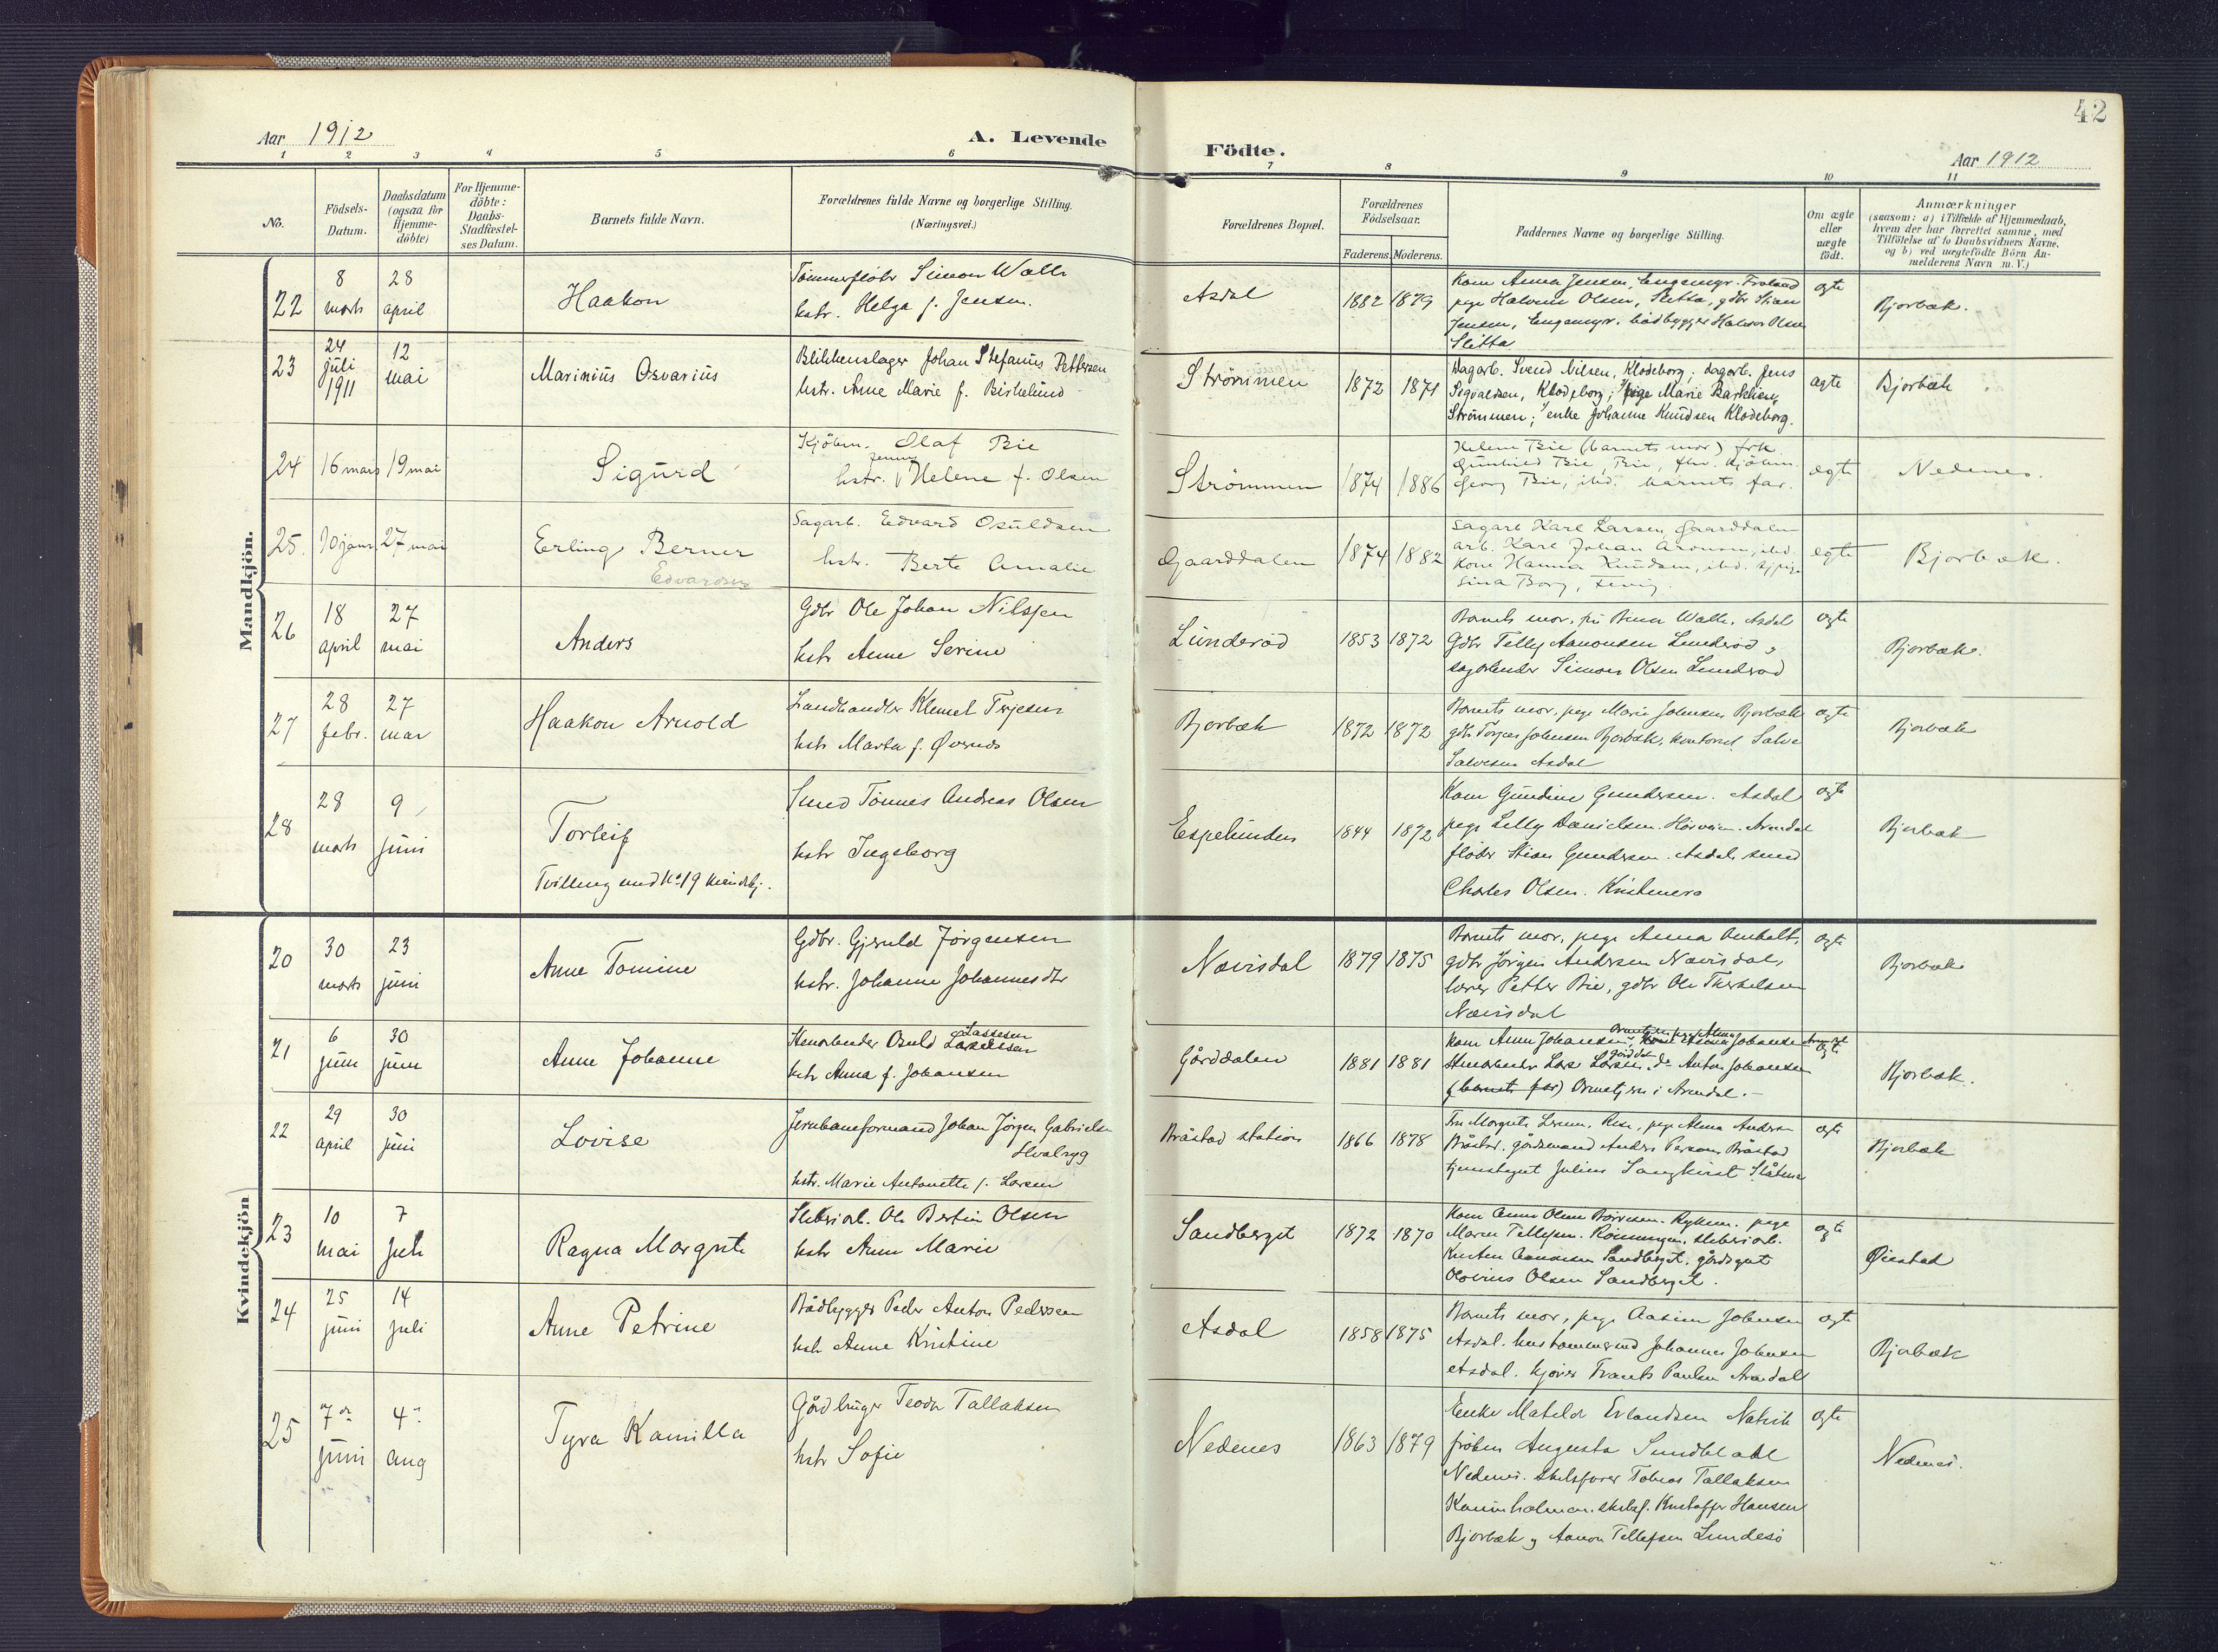 42
Aar 1912
A. Levende
Födte.
Aar 1912
1 2 3 4 5 6 7 8 9 10 11
No.
Födsels-
Datum.
Daabsdatum
(ogsaa for
Hjemme-
döbte)
For Hjemme-
döbte:
Daabs-
Stadfæstel-
ses Datum.
Barnets fulde Navn.
Forældrenes fulde Navne og borgerlige Stilling.
(Næringsvei.)
Forældrenes Bopæl.
Forældrenes
Födselsaar.
Faderens. Moderens.
Faddernes Navne og borgerlige Stilling.
Om ægte
eller
uægte
födt.
Anmærkninger
(saasom: a) i Tilfælde af Hjemmedaab,
hvem der har forrettet samme, med
Tilföielse af to Daabsvidners Navne,
og b) ved uægtefödte Börn An-
melderens Navn m. V.)
Mandkjön.
22
8
marts
28
april
Haakon
Tømmerfløter Simon Walle
hstr. Helga f. Jensen.
Asdal
1882 1879
Kone Anna Jensen, Engemyr. Froland
pige Halvine Olsen, Sletta, gdbr Stian
Jensen, Engemyr. baadbygger Halvor Olsen
Sletta
ægte
Bjorbæk.
23
24
juli
1911
12
mai
Marinius Osvarius
Blikkenslager Johan Stefanus Pettersen
hstr. Anne Marie f. Birkelund
Strömmen
1872 1871
Dagarb. Svend Nilsen, Klodeborg; dagarb. Jens
Sigvaldsen, Klodeborg; pige Marie
Strömmen; enke Johanne Knudsen Klodeborg.
ægte
Bjorbæk
24
16 mars
19 mai
Sigurd
Kjöbm. Olaf Bie
Jenny
hstr. Helene f. Olsen
Strömmen
1874 1886
Helene Bie (barnets mor) frk.
Gunhild Bie, Bie, fhv. kjöbm.
Georg Bie, ibid. barnets far.
ægte
Nedenes.
25.
10 janr.
27 mai
Erling Berner
Edvardsen
Sagarb. Edvard Osuldsen
hstr. Berte Amalie
Gaarddalen
1874 1882
Sagarb Karl Larsen, Gaarddalen
arb. Karl Johan Aronsen, ibid.
kone Hanna Knudsen, ibid.
Sina Borg, Fevig.
ægte
Bjorbæk.
26
18
april
27
mai
Anders
Gdbr Ole Johan Nilssen
hstr Anne Serine
Lunderöd
1853 1872
Barnets mor, Walle, Asdal
Gdbr Tellef Aanonsen Lunderöd,
sagarbeider Simon Olsen Lunderöd
ægte
Bjorbæk.
27
28
febr.
27
mai
Haakon Arnold
Landhandler Klemet Terjesen
hstr Marta f. Øvernes
Bjorbæk
1872 1872
Barnets mor, pige Marie Johnsen Bjorbæk
gdbr Torjus Johnsen Bjorbæk, kontorist Salve
Salvesen Asdal
ægte
Bjorbæk
28
28
marts
9
juni
Torleif
Tvilling med No 19 kvindekj.
Smed Tönnes Andreas Olsen
hstr Ingeborg
Espelunden
1844 1872
Kone Gundine Gundersen. Asdal
pige Lelly Danielsen. Arendal
fløter Stian Gundersen. Asdal, smed
Charles Olsen. Kristinero
ægte
Bjorbæk
Kvindekjön
20
30
marts
23
juni
Anne Tomine
Gdbr. Gjeruld Jörgensen
hstr. Johanne Johannesdtr
Nævisdal
1879 1875
Barnets mor, pige Anna Omholt,
gdbr Jörgen Andersen Nævisdal,
lærer Petter Bie, gdbr Ole Therkelsen
Nævisdal
ægte
Bjorbæk
21
6
juni
30
juni
Anne Johanne
Lassesen
Stenarbeider Osuld
hstr Anna f. Johansen
Gårddalen
1881 1881
Kone Anne Johansen, pige Alma Johansen
Stenarbeider Lars Larsen, Anton Johansen
(barnets far) Ormetjern i Arendal.
ægte
Bjorbæk.
22
29
april
30
juni
Lovise
Jernbaneformand Johan Jörgen Gabrielsen
Hvalryg
hstr. Marie Antonette f. Larsen
Bråstad station
1866 1878
Fru Margrete Larsen. Rise, pige Alma Andersen
Bråstad. gårdmand Anders Persen Bråstad
tjenestegut Julius Langkvist
ægte
Bjorbæk
23
10
mai
7
juli
Ragna Margrete
Sliberiarb. Ole Bertin Olsen
hstr Anne Marie
Sandberget
1872 1870
Kone Anne Olene Rykene. pige
Maren Tellefsen. sliberiarb.
Kristen Aanonsen Sandberget, gårdsgut
Olavius Olsen Sandberget.
ægte
Øiestad
24
25
juni
14
juli
Anne Petrine
Bådbygger Peder Anton Pedersen
hstr Anne Kristine
Asdal
1858 1875
Barnets mor, pige Aasine Johnsen
Asdal. hustømmermand Johannes Johnsen
Asdal. kjører Frants Paulsen Arendal
ægte
Bjorbæk
25
7de
juni
4
aug
Tyra Kamilla
Gårdbruger Teodor Tallaksen
hstr Sofie
Nedenes
1863 1879
Enke Matilde Evlandsen Natvik
fröken Augusta Sundblad
Nedenes. skibsfører Tobias Tallaksen
Kauinholmen. skibsf. Kristoffer Hansen
Bjorbæk og Aanon Tellefsen Lundesö
ægte
Nedenes.